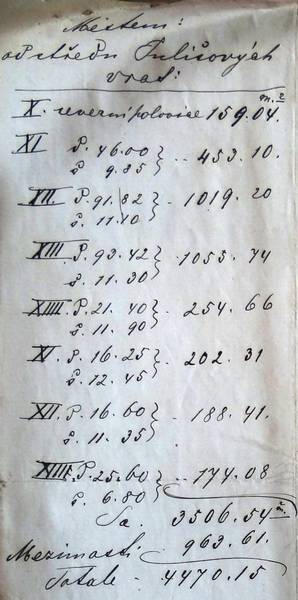 Městem:
od středu Tulišových
vrat:
X. severní polovice 159.04. m.²
XI P. 46.00 } .. 453.10.
š. 9.85
XII. P. 91.82 } .. 1019.20
š. 11.10
XIII P. 93.42 } .. 1055.74
š. 11.30
XIIII. P. 21.40 } .. 254.66
š. 11.90
XV. P. 16.25 } .. 202.31
š. 12.45
XVI. P. 16.60 } .. 188.41.
š. 11.35
XVII. P. 25.60 } .. 174.08
š. 6.80
Sa. 3506.54 m.²
Mezimostí: 963.61.
Totale - 4470.15